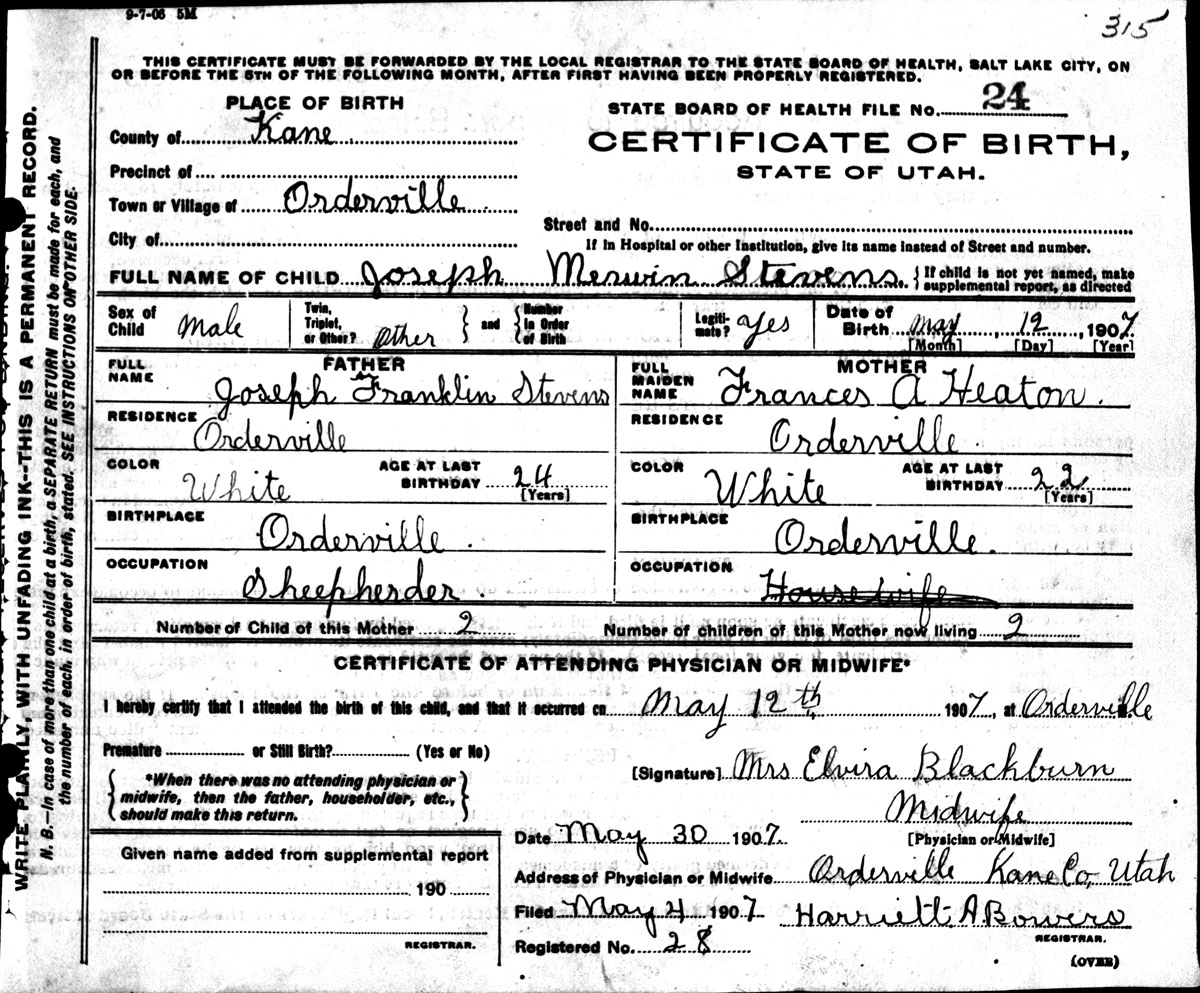 9-7-06 5M
315
THIS CERTIFICATE MUST BE FORWARDED BY THE LOCAL REGISTRAR TO THE STATE BOARD OF HEALTH, SALT LAKE CITY, ON
OR BEFORE THE 5TH OF THE FOLLOWING MONTH, AFTER FIRST HAVING BEEN PROPERLY REGISTERED.
PLACE OF BIRTH
STATE BOARD OF HEALTH FILE No. 24
County of Kane
CERTIFICATE OF BIRTH,
Precinct of
STATE OF UTAH.
Town or Village of Orderville
Street and No.
City of
If in Hospital or other Institution, give its name instead of Street and number.
FULL NAME OF CHILD Joseph Merwin Stevens. {If child is not yet named, make supplemental report, as directed
Sex of Child Male
Twin, Triplet, or Other? Other } and { Number in Order of Birth
Legiti-mate? Yes
Date of Birth May, 12, 1907
[Month] [Day] [Year]
FATHER
FULL NAME Joseph Franklin Stevens
RESIDENCE Orderville
COLOR White
AGE AT LAST BIRTHDAY 24 [Years]
BIRTHPLACE Orderville.
OCCUPATION Sheepherder.
MOTHER
FULL MAIDEN NAME Frances A Heaton.
RESIDENCE Orderville
COLOR White
AGE AT LAST BIRTHDAY 22 [Years]
BIRTHPLACE Orderville.
OCCUPATION Housewife
Number of Child of this Mother 2 Number of children of this Mother now living 2
CERTIFICATE OF ATTENDING PHYSICIAN OR MIDWIFE*
I hereby certify that I attended the birth of this child, and that it occurred on May 12th 1907, at Orderville
Premature or Still Birth? (Yes or No)
[Signature] Mrs Elvira Blackburn
{*When there was no attending physician or
midwife, then the father, householder, etc.,
should make this return.}
Midwife
[Physician or Midwife]
Date May 30 1907.
Given name added from supplemental report
190
REGISTRAR.
Address of Physician or Midwife Orderville Kane Co, Utah
Filed May 4 1907 Harriett A Bowers
REGISTRAR.
Registered No. 28
(OVER)
WRITE PLAINLY, WITH UNFADING INK--THIS IS A PERMANENT RECORD.
N. B.—In case of more than one child at a birth, a SEPARATE RETURN must be made for each, and
the number of each, in order of birth, stated. SEE INSTRUCTIONS ON OTHER SIDE.